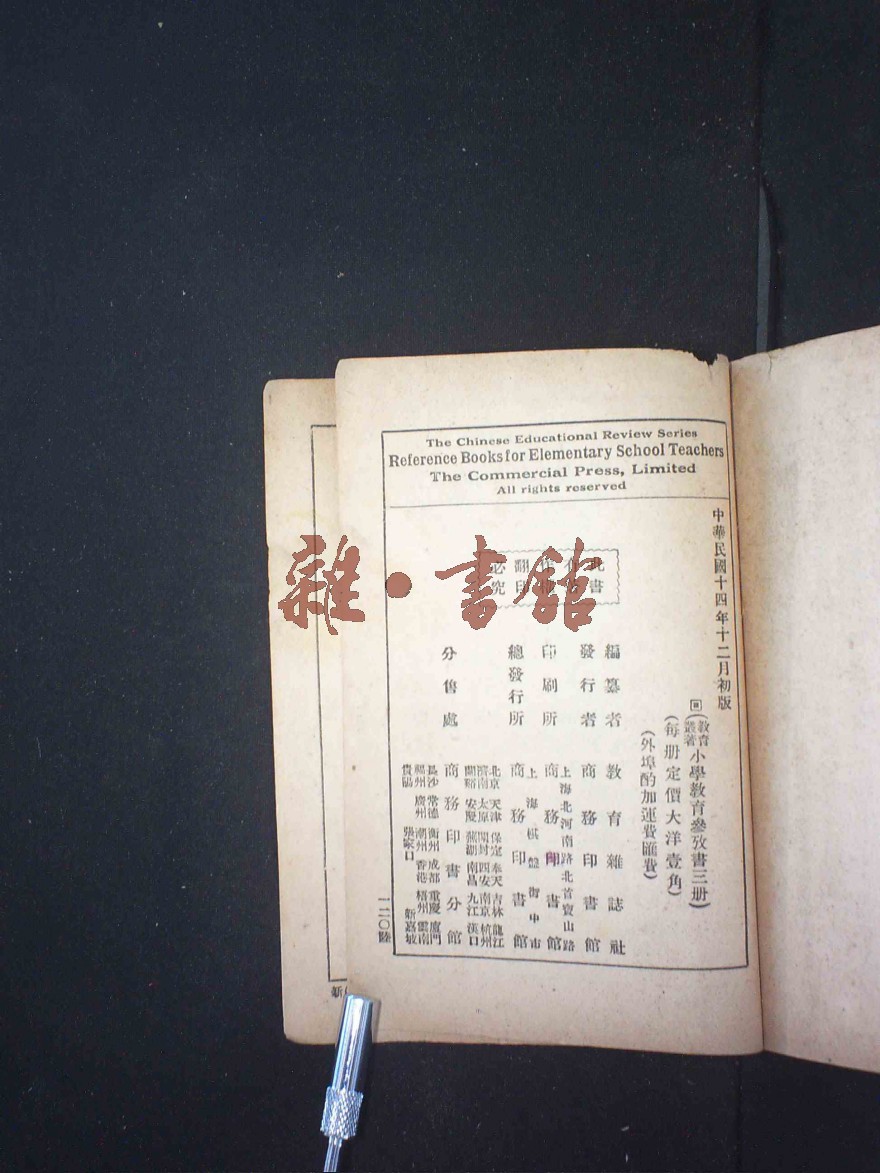 The Chinese Educational Review Series
Reference Books for Elementary School Teachers
The Commercial Press, Limited
All rights reserved
中華民國十四年十二月初版
(教育叢著小學教育參攷書三册)
(每册定價大洋壹角)
(外埠酌加運費匯費)
此書
翻印
必究
編纂者 教育雜誌社
發行者 商務印書館
上海北河南路北首寶山路
印刷所 商務印書館
上海棋盤街中市
總發行所 商務印書館
分售處 商務印書分館
北京 天津 保定 奉天 吉林 龍江
濟南 太原 開封 西安 南京 杭州
蘭谿 安慶 蕪湖 南昌 九江 漢口
長沙 常德 衡州 成都 重慶 廈門
福州 廣州 潮州 香港 梧州 雲南
貴陽 張家口 新嘉坡
一二〇陸
雜·書館